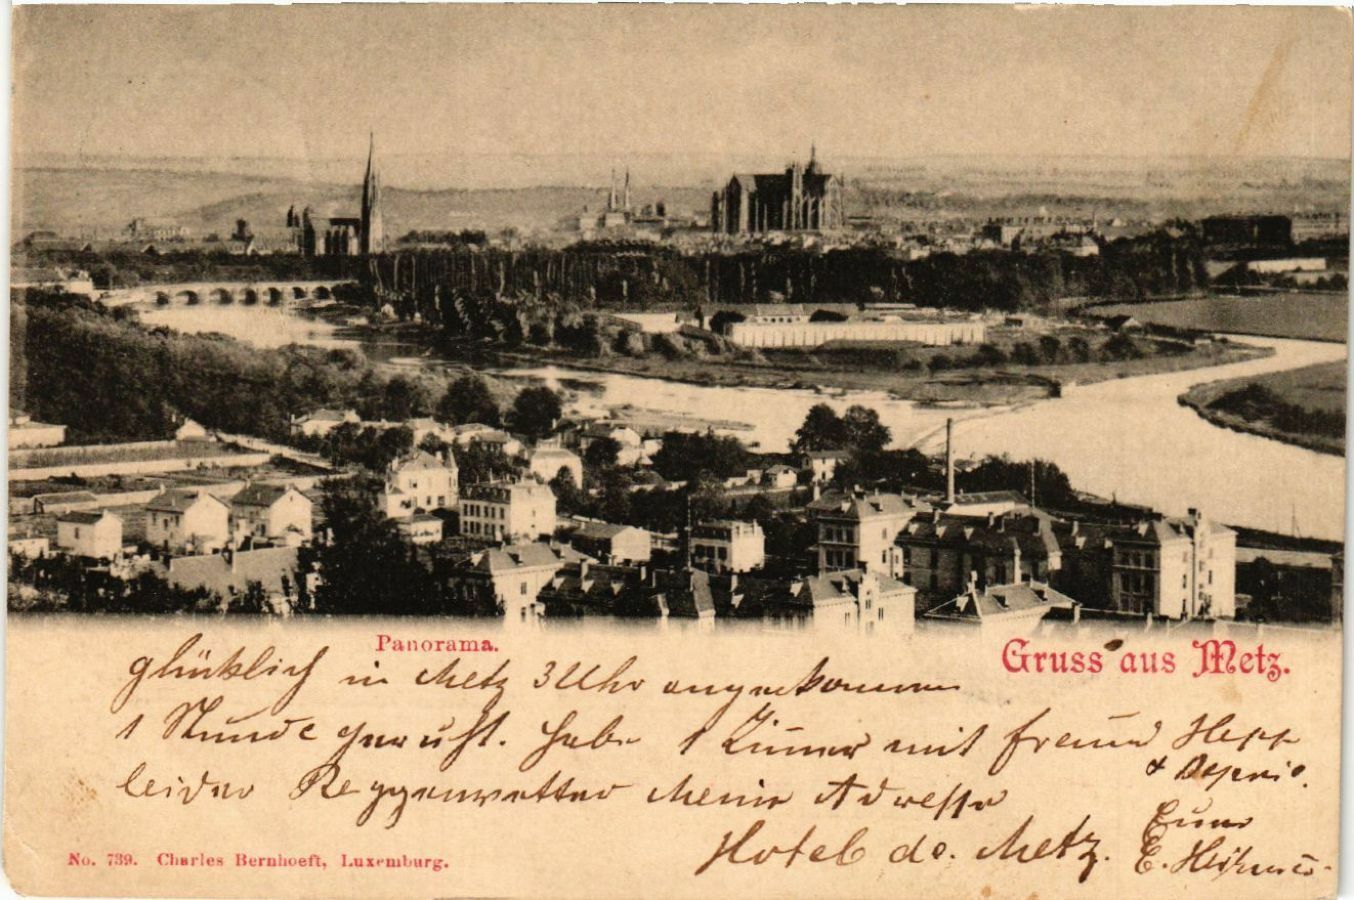 Panorama.
Gruss aus Metz.
glücklich in Metz 3 Uhr angekommen
1 Stunde geruht. habe 1 Zimmer mit freund Hepp
leider Reggenwetter Meine Adresse
Hotel de. Metz.
E.
No. 739. Charles Bernhoeft, Luxemburg.